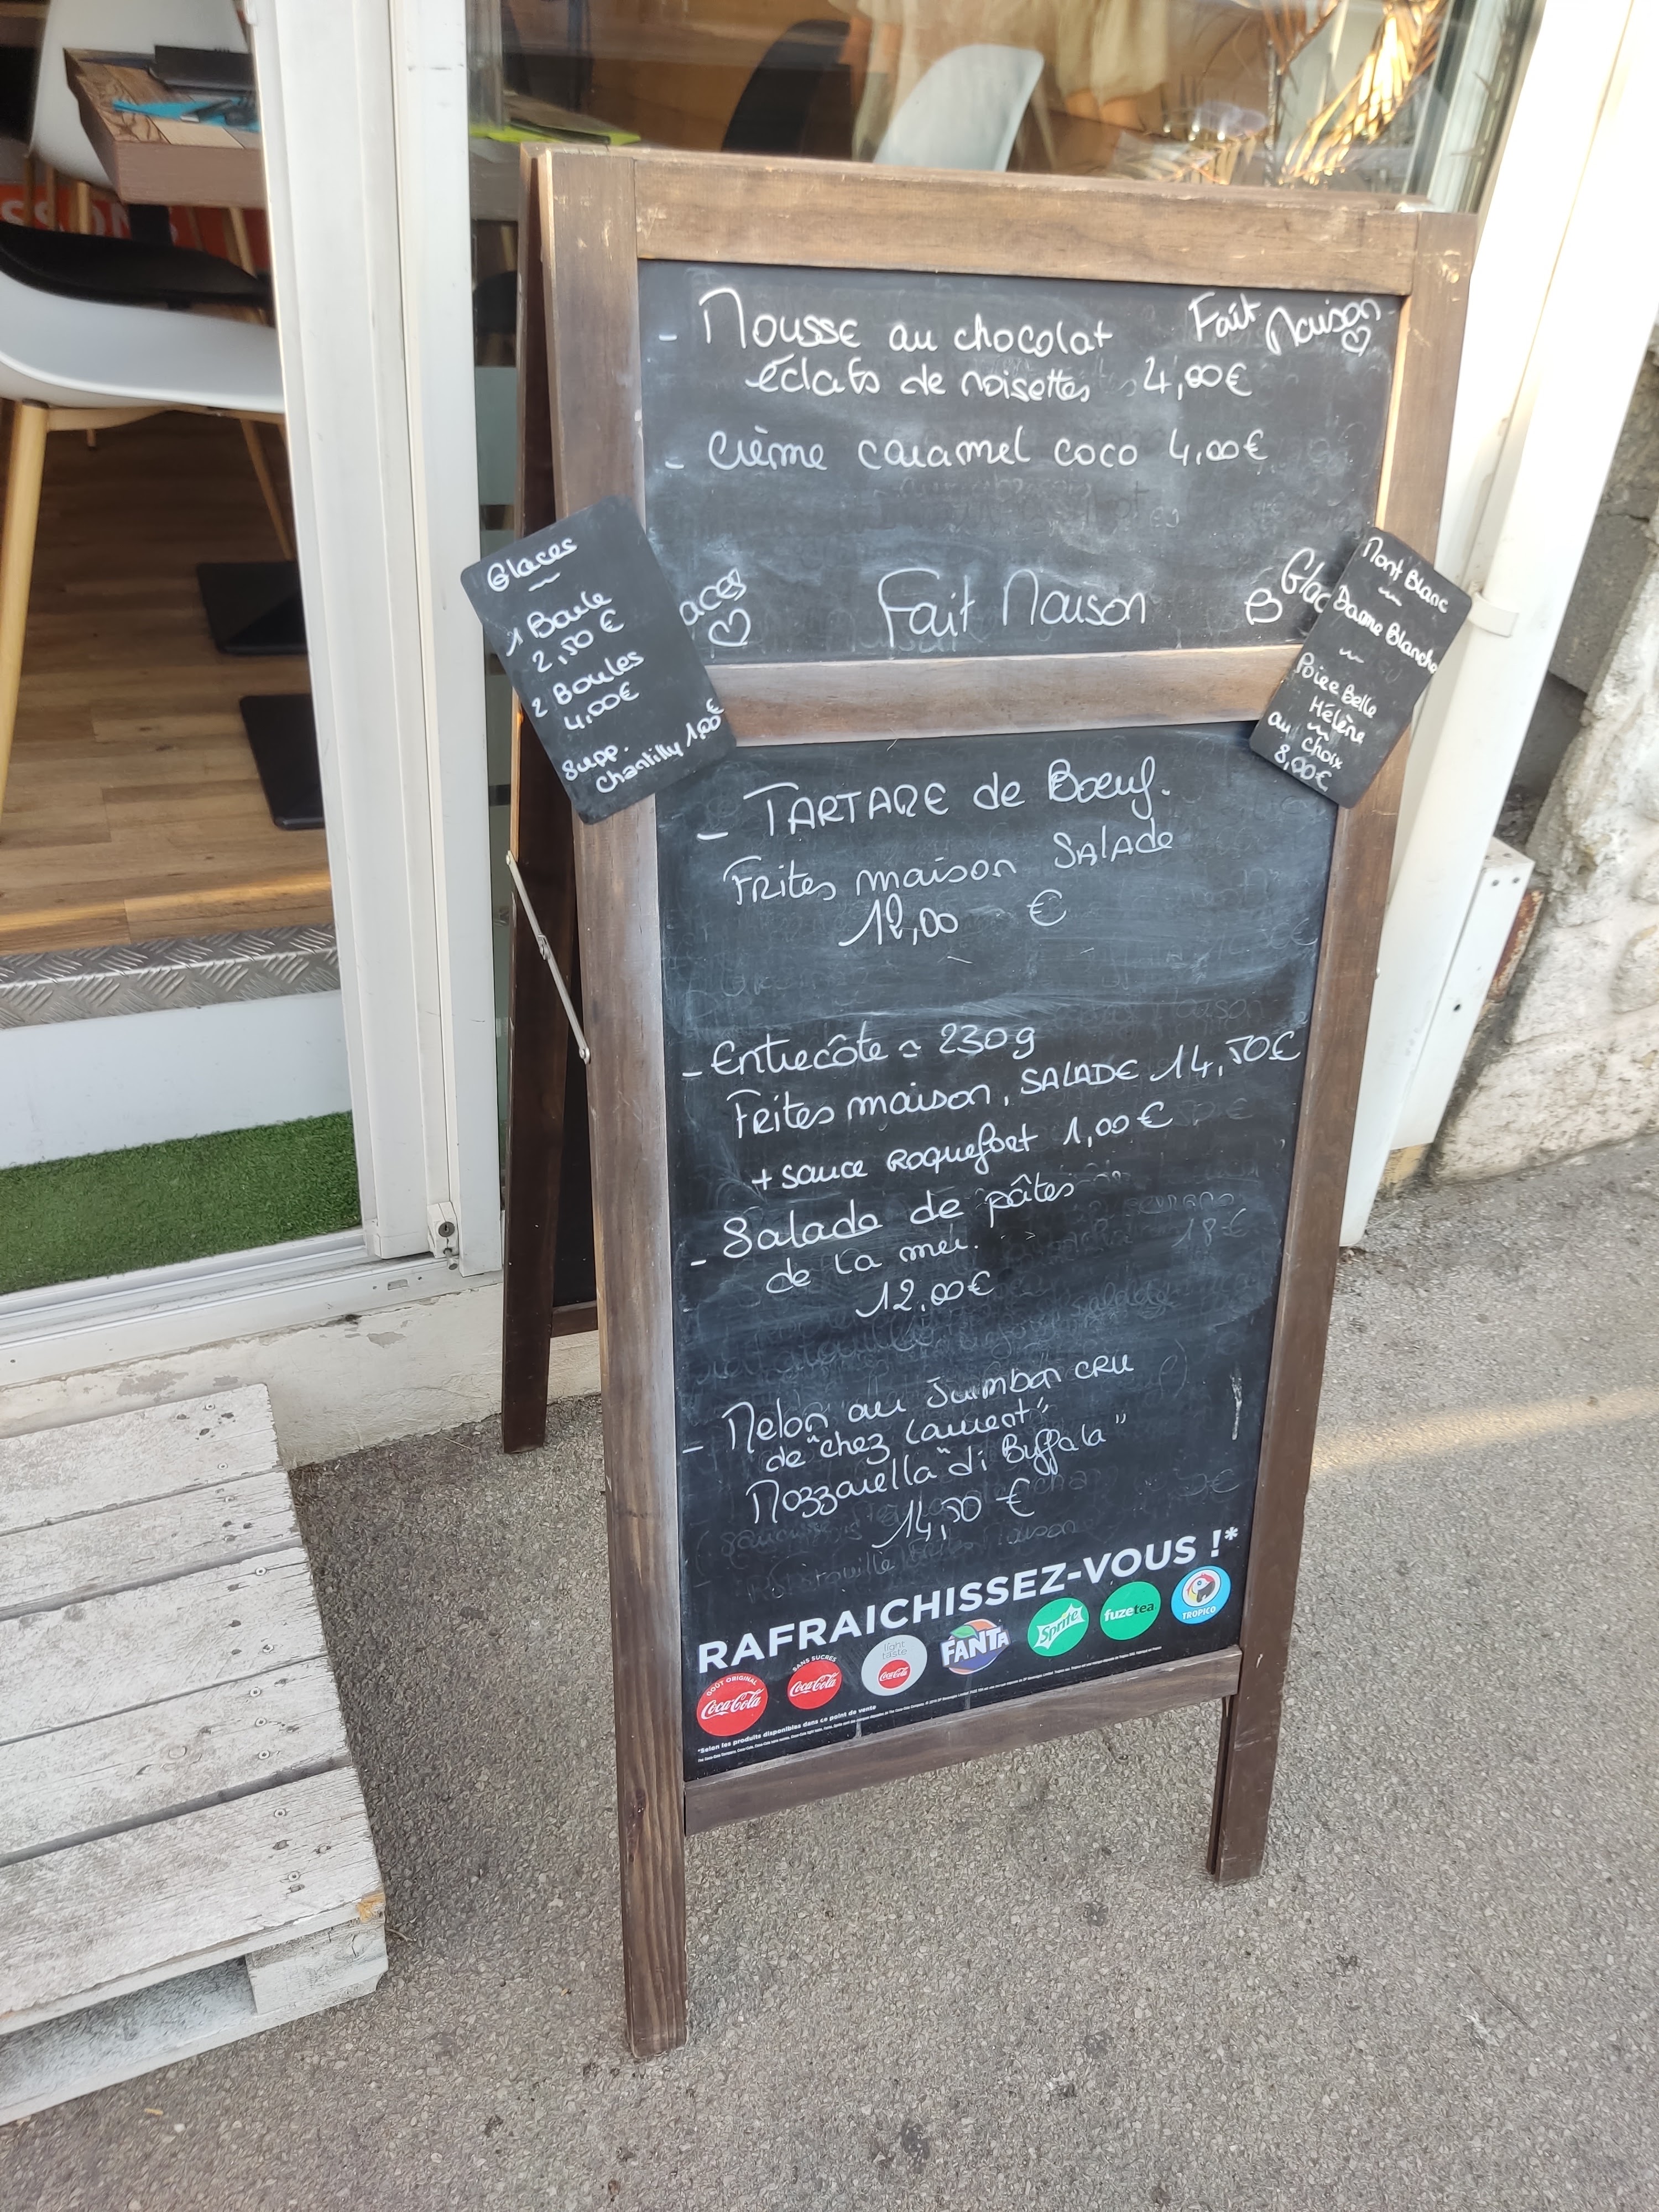 - Mousse au chocolat
éclats de noisettes 4,00€
Fait Maison
- Crème caramel coco 4,00€
Fait Maison
Glaces
1 Boule
2,50 €
2 Boules
4,00€
Supp.
Chantilly 1,00€
Mont Blanc
Dame Blanche
Poire Belle
Hélène
au choix
8,00€
- TARTARE de Bœuf.
Frites maison SALADE
€
- Entrecôte ≃ 230g
Frites maison, SALADE 14,50€
+ sauce ROQUEfort 1,00€
- Salade de pâtes
de la mer.
12,00€
- Melon au Jambon CRU
de "chez Laurent"
Mozzarella "di Buffala"
14,50 €
RAFRAICHISSEZ-VOUS !*
GOÛT ORIGINAL
Coca-Cola
SANS SUCRES
Coca-Cola
light
taste
Coca-Cola
FANTA
Sprite
fuzetea
TROPICO
*Selon les produits disponibles dans ce point de vente